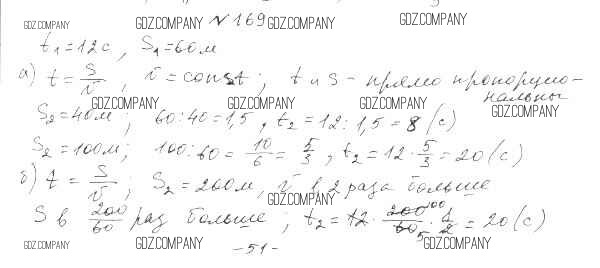 GDZ.COMPANY №169 GDZ.COMPANY GDZ.COMPANY
t₁=12с, S₁=60м
а) t = S/v, v = const; t и S - прямо пропорцио-
нальны
GDZ.COMPANY GDZ.COMPANY GDZ.COMPANY
S₂=40м; 60:40=1,5, t₂=12:1,5=8 (с)
S₂=100м; 100:60= 10/6 = 5/3, t₂=12·5/3=20(с)
б) t = S/v; S₂=200м, v в 2 раза больше
GDZ.COMPANY
S в 200/60 раз больше; t₂=12·200/60·1/2=20(с)
GDZ.COMPANY GDZ.COMPANY GDZ.COMPANY
-51-